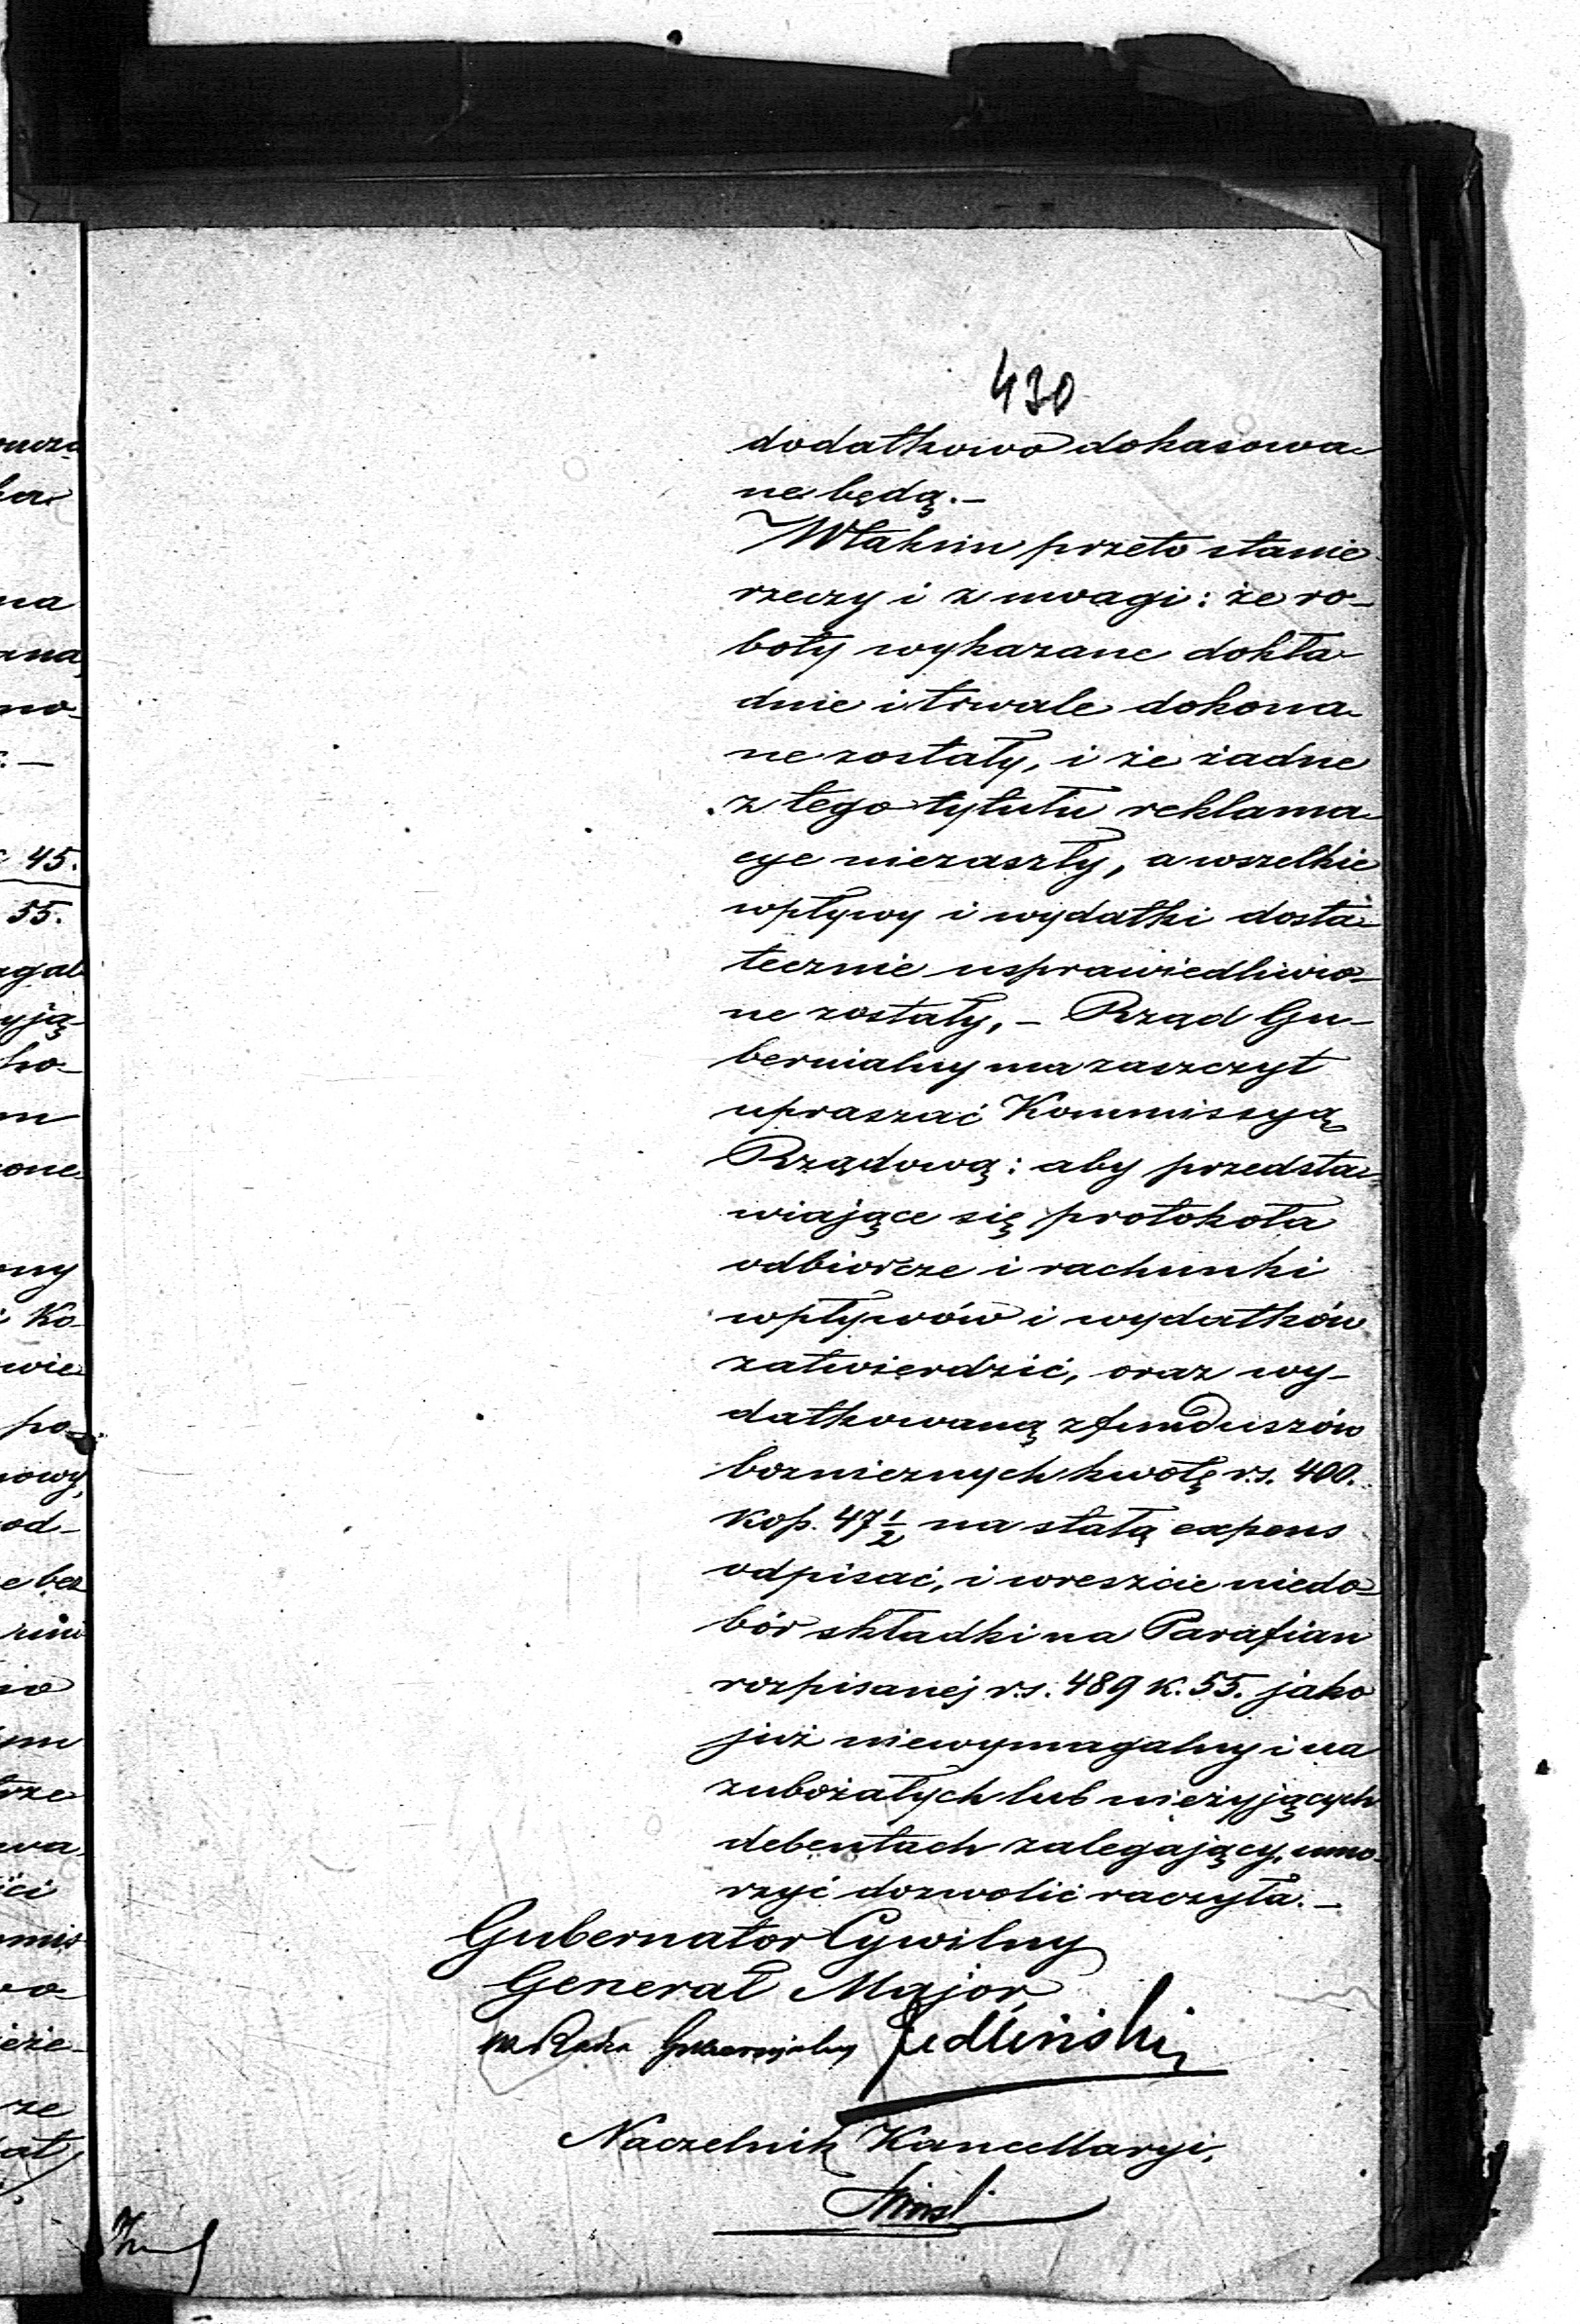 430
dodatkowo dokasowa-
ne będą.-
W takim przeto stanie
rzeczy i z uwagi: że ro-
boty wykazane dokła-
dnie i trwale dokona-
ne zostały, i że żadne
z tego tytułu reklama-
cye niezaszły, a wszelkie
wpływy i wydatki dosta-
tecznie usprawiedliwio-
ne zostały, - Rząd Gu-
bernialny ma zaszczyt
upraszać Kommissyą
Rządową: aby przedsta-
wiające się protokóła
odbiorcze i rachunki
wpływów i wydatków
zatwierdzić, oraz wy-
datkowaną z funduszów
bozniczych kwotę r.s. 400.
kop. 47½ na stałą expens
odpisać, i wreszcie niedo-
bór składki na Parafian
rozpisanej r.s. 489 k. 55. jako
już niewymagalny i na
zubożałych lub nieżyjących
debentach zalegający, umo-
rzyć dozwolić raczyła.-
Gubernator Cywilny
Generał Major
Gubernjalny Jedliński
Naczelnik Kancellaryi,